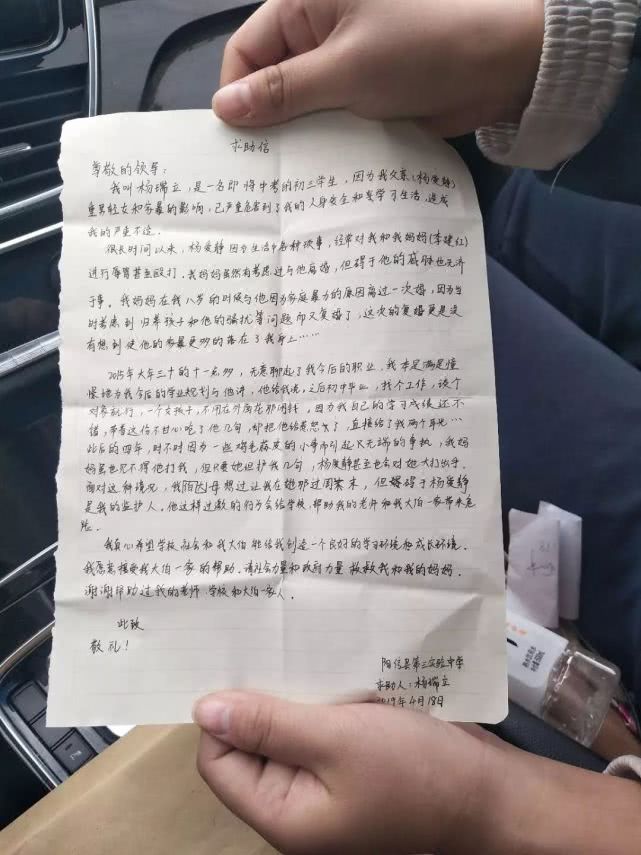 求助信
尊敬的领导:
我叫杨瑞立,是一名即将中考的初三学生,因为我父亲(杨爱静)
重男轻女和家暴的影响,已严重危害到了我的人身安全和学习生活,造成
我的严重不适。
很长时间以来,杨爱静因为生活中各种琐事,经常对我和我妈妈(李建红)
进行辱骂甚至殴打。我妈妈虽然有考虑过与他离婚,但碍于他的威胁也无济
于事。我妈妈在我八岁的时候与他因为家庭暴力的原因离过一次婚,因为当
时考虑到归养孩子和他的骚扰等问题而又复婚了,这次的复婚更是没
有想到使他的家暴更多的落在了我身上……
2015年大年三十的十一点多,无意聊起了我今后的职业,我本是满是憧
憬地为我今后的学业规划与他讲,他给我说,之后初中毕业,找个工作,谈个
对象就行,一个女孩子,不用在外面花那闲钱,因为我自己的学习成绩还不
错,带着这份不甘心吃了他几句,却把他给惹怒了,直接给了我两个耳光…
此后的四年,时不时因为一些鸡毛蒜皮的小事而引起又无端的争执,我妈
妈虽也见不得他打我,但只要她但护我几句,杨爱静甚至也会对她大打出手。
面对这种情况,我伯母想过让我在她那过周末,但碍于杨爱静
是我的监护人。他这样过激的行为会给学校,帮助我的老师和我大伯一家带来危
险。
我真心希望学校,社会和我大伯能给我创造一个良好的学习环境和成长环境。
我愿意接受我大伯一家的帮助。请社会力量和政府力量救救我和我的妈妈。
谢谢帮助过我的老师、学校和大伯一家人。
此致
敬礼!
阳信县第三实验中学
求助人:杨瑞立
2019年4月18日